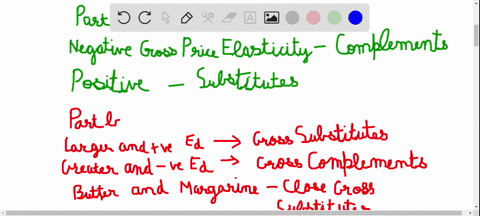 Part
Negative Gross Price Elasticity - Complements
Positive - Substitutes
Part b
Larger and +ve Ed → Gross Substitutes
Greater and -ve Ed → Gross Complements
Butter and Margarine - Close Gross
Substitutes